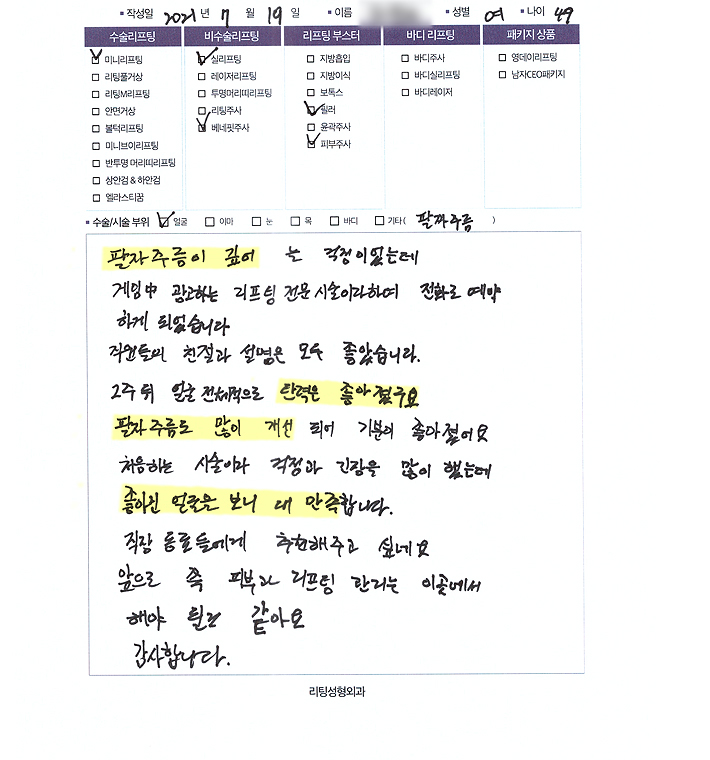 작성일 2021 년 7 월 19 일 이름 성별 여 나이 49
수술리프팅 비수술리프팅 리프팅 부스터 바디 리프팅 패키지 상품
미니리프팅 실리프팅 지방흡입 바디주사 영데이리프팅
리팅풀거상 레이저리프팅 지방이식 바디실리프팅 남자CEO패키지
리팅M리프팅 투명머리띠리프팅 보톡스 바디레이저
안면거상 리팅주사 필러
볼턱리프팅 베네핏주사 윤곽주사
미니브이리프팅 피부주사
반투명 머리띠리프팅
상안검 & 하안검
엘라스티꿈
수술/시술 부위 얼굴 이마 눈 목 바디 기타( 팔자주름 )
팔자주름이 깊어 는 걱정이었는데
게임中 광고하는 리프팅 전문시술이라하여 전화로 예약
하게 되었습니다
직원들의 친절과 설명은 모두 좋았습니다.
2주 뒤 얼굴 전체적으로 탄력은 좋아졌구요
팔자주름도 많이 개선 되어 기분의 좋아졌어요
처음하는 시술이라 걱정과 긴장을 많이 했는데
좋아진 얼굴을 보니 대 만족합니다.
직장 동료들에게 추천해주고 싶네요
앞으로 쭉 피부과 리프팅 관리는 이곳에서
해야 될것 같아요
감사합니다.
리팅성형외과